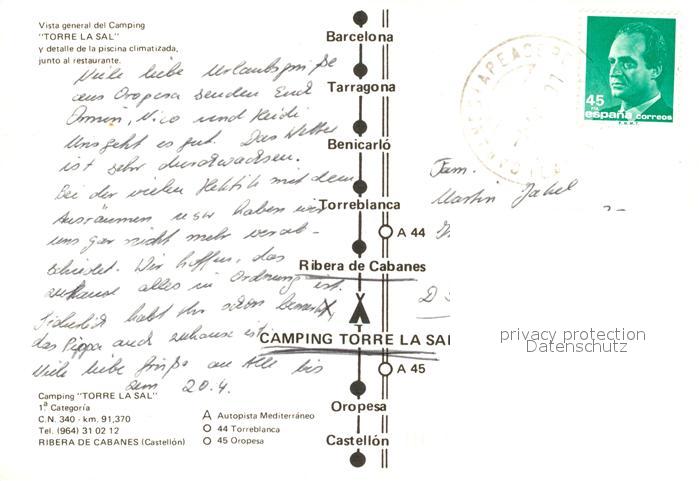 Vista general del Camping
"TORRE LA SAL"
y detalle de la piscina climatizada,
junto al restaurante.
Viele liebe Urlaubsgrüße
aus Oropesa senden Euch
Armin, Nico und Heidi
Uns geht es gut. Das Wetter
ist sehr durchwachsen.
Bei der vielen Hektik mit dem
Ausräumen usw haben wir
uns gar nicht mehr verab-
schiedet. Wir hoffen, das
zuhause alles in Ordnung ist.
habt Ihr schon bemerkt,
das Pippa auch zuhause ist.
Viele liebe Grüße an Alle bis
zum 20.4.
Camping "TORRE LA SAL"
1.ª Categoría
C.N. 340 - km. 91,370
Tel. (964) 31 02 12
RIBERA DE CABANES (Castellón)
A Autopista Mediterráneo
44 Torreblanca
45 Oropesa
Barcelona
Tarragona
Benicarló
Torreblanca
A 44
Ribera de Cabanes
CAMPING TORRE LA SAL
A 45
Oropesa
Castellón
45
PTA
españa correos
F.N.M.T.
Fam.
Martin Jakel
D
privacy protection
Datenschutz